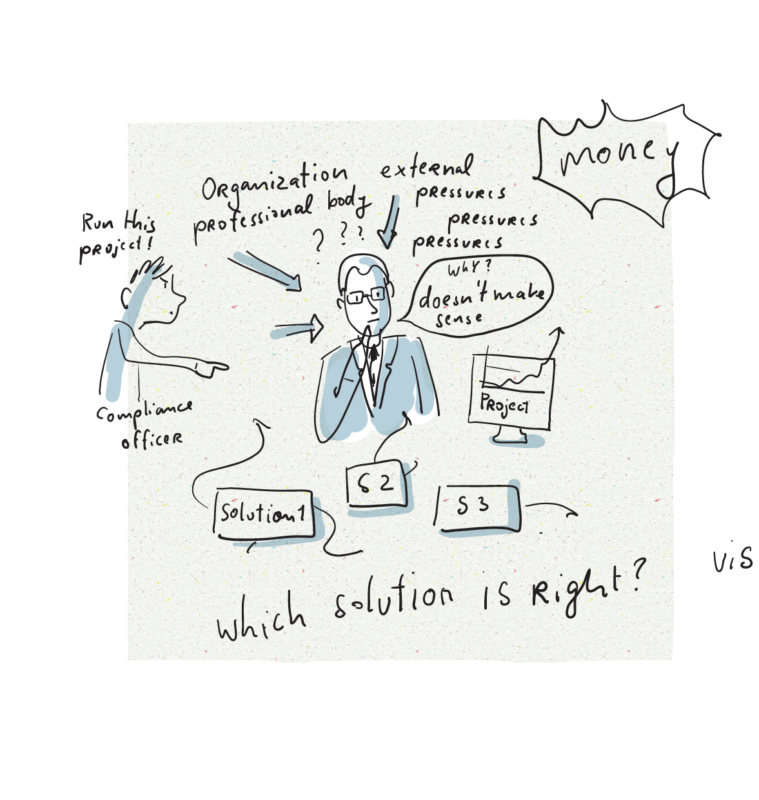 money
Organization
professional body
external
pressures
pressures
pressures
Run this
project!
? ? ?
Why?
doesn't make
sense
Project
Compliance
officer
Solution 1
S 2
S 3
Which solution is right?
ViS